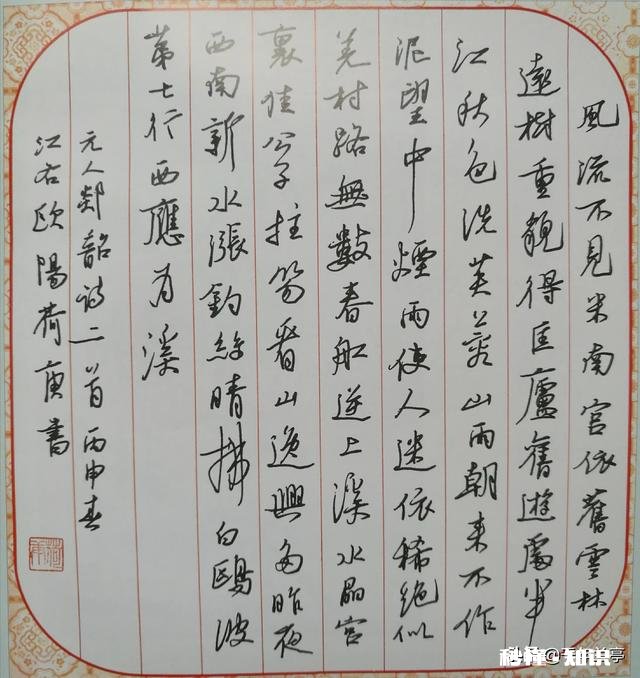 風流不見米南宫依舊雲林
遠樹重貌得匡廬舊遊處半
江秋色洗芙蓉山雨朝来不作
泥望中煙雨使人迷依稀絶似
羌村路無數春船逆上溪水晶宫
裏佳公子拄笏看山逸興多昨夜
西南新水漲釣絲晴拂白鷗波
第七行西應为溪
元人郯韶诗二首丙申春
江右欧陽荷庚書
知识